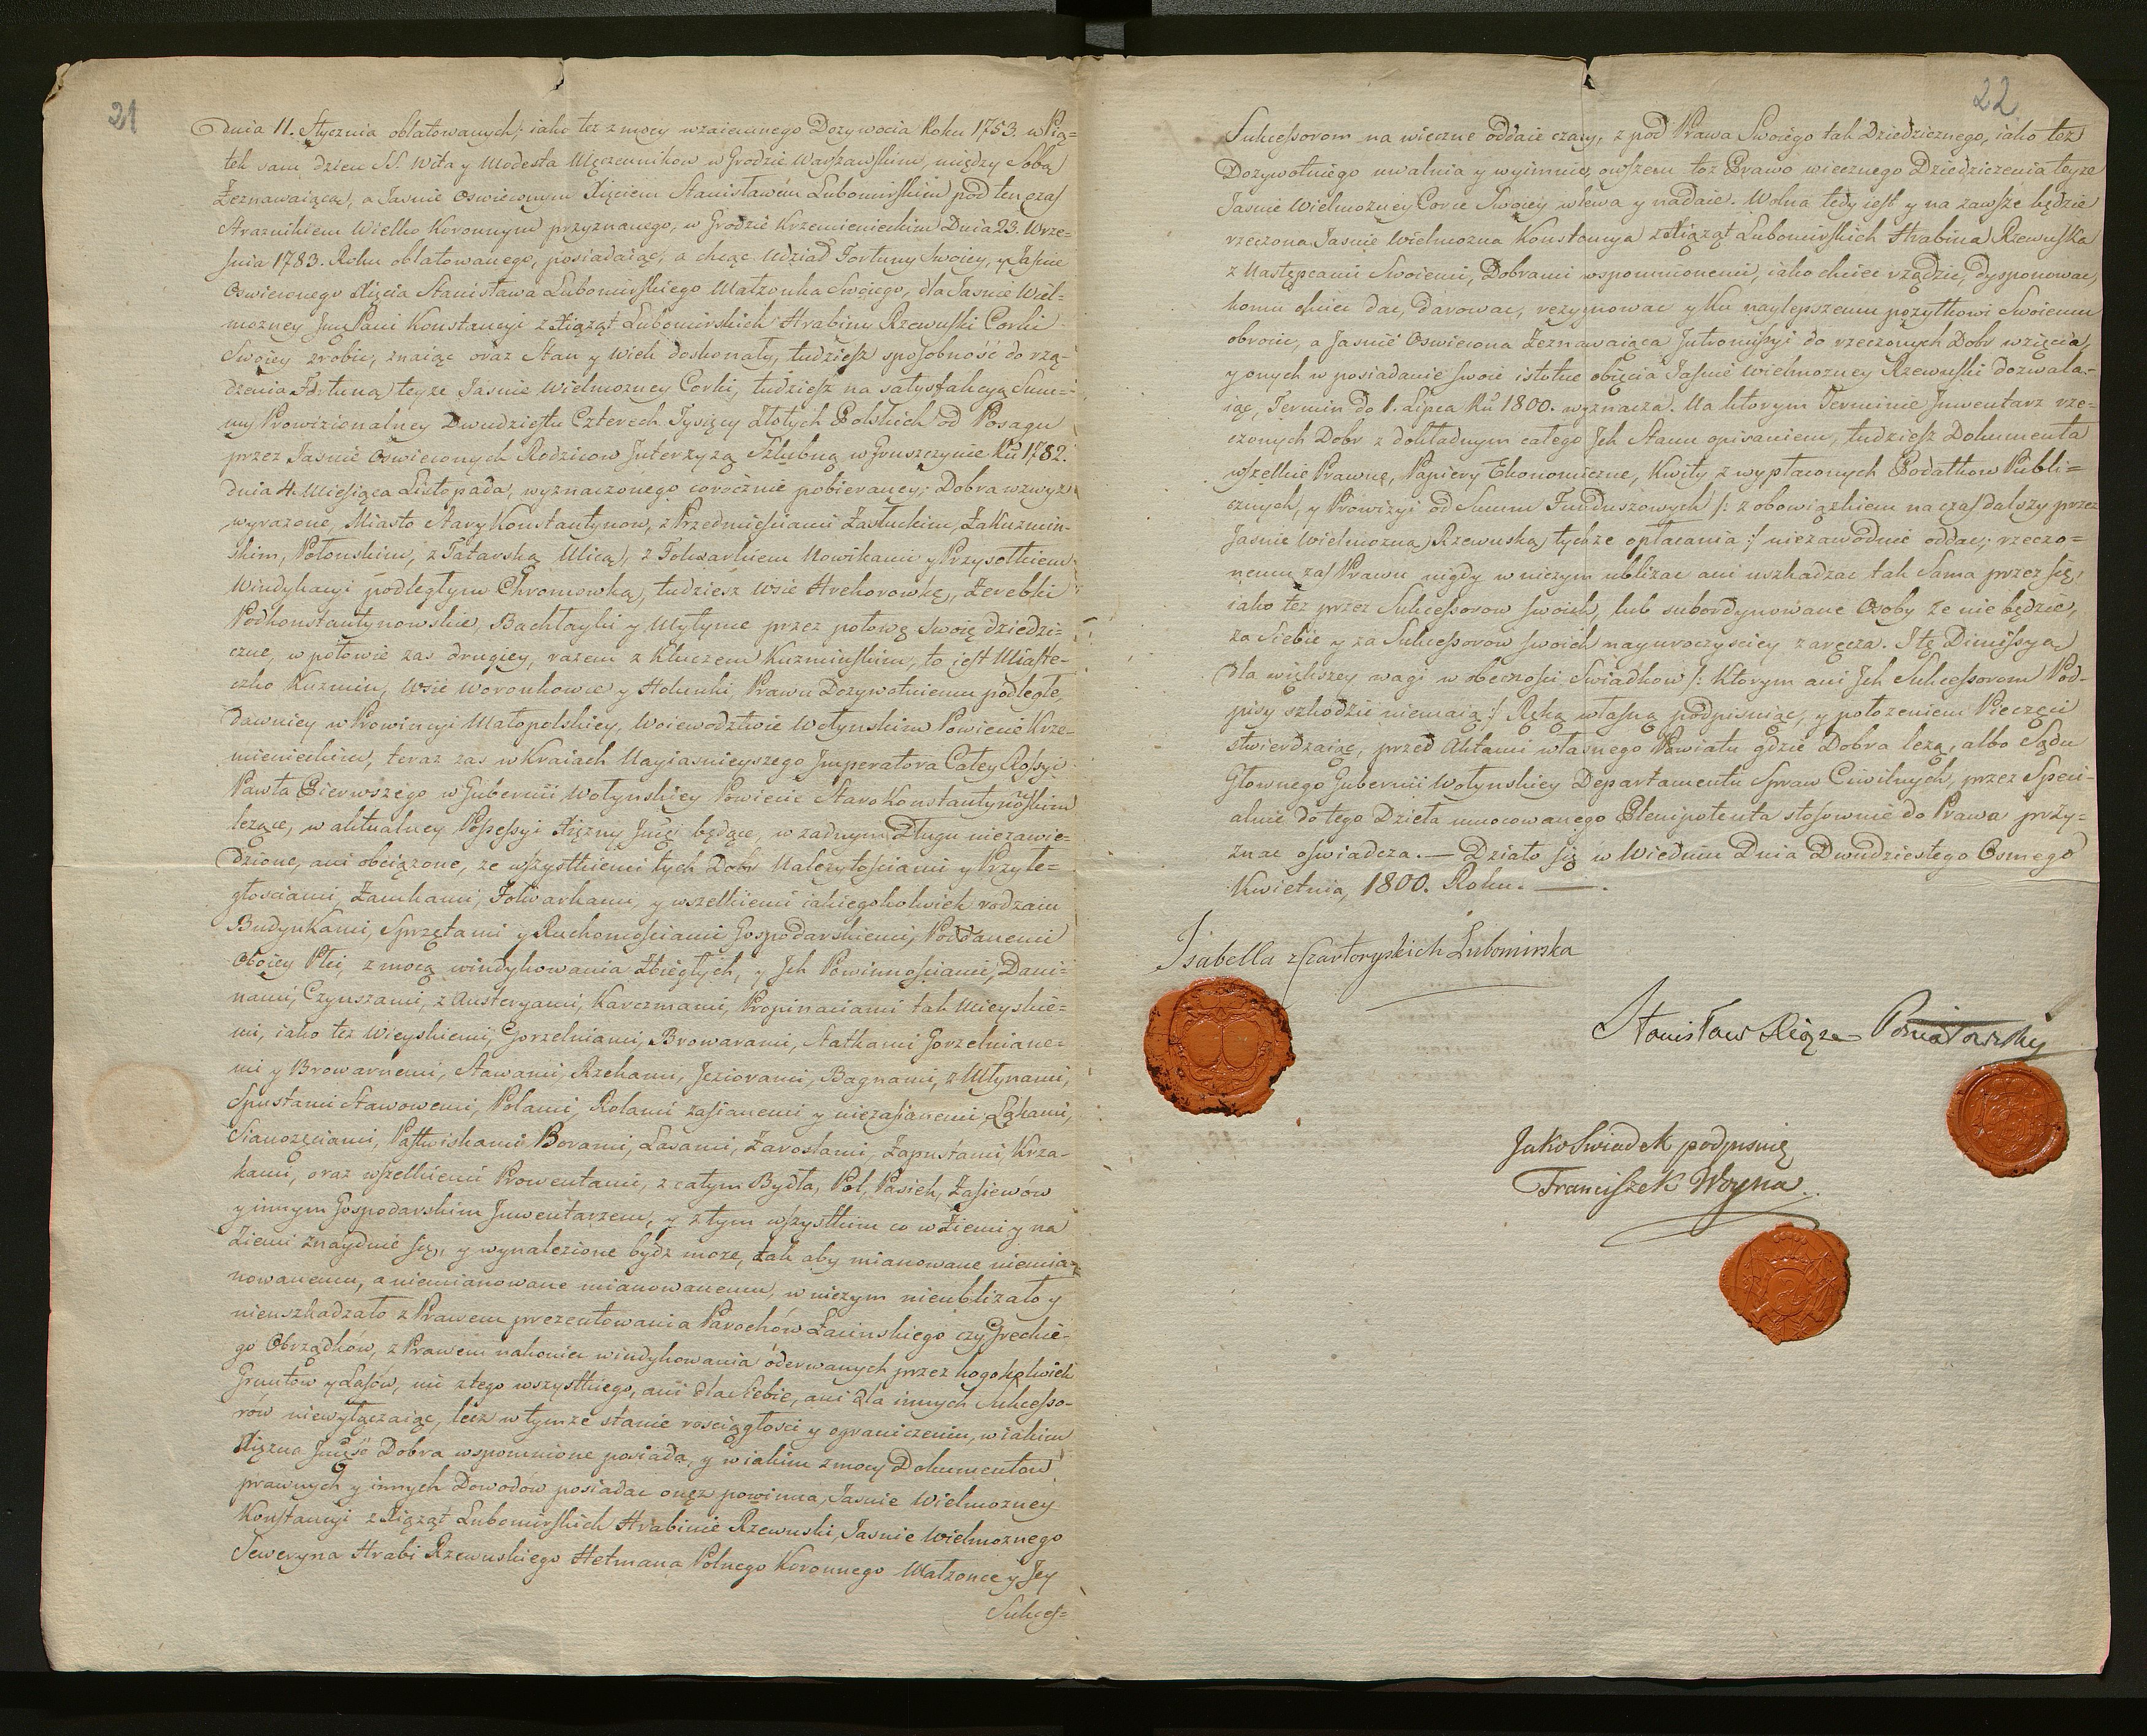 21
dnia 11. Stycznia oblatowanych: iako tez z mocy wzaiemnego Dozywocia Roku 1753. w Pią=
tek sam dzien SS. Wita y Modesta Męczennikow w Grodzie Warszawskim, między Sobą
Zeznawaiącą, a Jasnie Oswieconym Xięciem Stanisławem Lubomirskim pod ten czas
Straznikiem Wielko Koronnym przyznanego, w Grodzie Krzemienieckim Dnia 23. Wrze=
snia 1783. Roku oblatowanego, posiadaiąc, a chcąc Udział Fortuny Swoiey, y Jasnie
Oswieconego Xięcia Stanisława Lubomirskiego Małzonka Swoiego, dla Jasnie Wiel=
mozney Jmc Pani Konstancyi z Xiąząt Lubomirskich Hrabiny Rzewuski Corki
Swoiey zrobic, znaiąc oraz Stan y Wiek doskonały, tudziesz sposobność do rzą=
dzenia Fortuną teyze Jasnie Wielmozney Corki, tudziesz na satysfakcyą Sum=
my Prowizionalney Dwudziestu Czterech Tysięcy Złotych Polskich od Posagu
przez Jasnie Oswieconych Rodzicow Intercyzą Szlubną w Gruszczynie Ru 1782.
dnia 4. Miesiąca Listopada, wyznaczonego corocznie pobieraney; Dobra wzwyz
wyrazone, Miasto Stary Konstantynow, z Przedmiesciami Zasłuckim, Zakuzmin=
skim, Połonskim, z Tatarską Ulicą, z Folwarkiem Nowikami y Przysołkiem
Windykacyi podległym Chromowką, tudziesz Wsie Hrehorowkę, Zerebki
Podkonstantynowskie, Bachłayki y Młyńce przez połowę Swoię dziedzi=
czne, w połowie zas drugiey, razem z Kluczem Kuzminskim, to iest Miaste=
czko Kuzmin, Wsie Woronkowce y Hołunki Prawu Dozywotniemu podległe,
dawniey w Prowincyi Małopolskiey, Woiewodztwie Wołynskim Powiecie Krze=
mienieckim, teraz zas w Kraiach Nayiasnieyszego Imperatora Całey Rossyi
Pawła Pierwszego w Gubernii Wołynskiey Powiecie Staro Konstantynoskim
lezące, w aktualney Possessyi Xięzny Jmci będące, w zadnym Długu niezawie=
dzione, ani obciązone, ze wszystkiemi tych Dobr Nalezytosciami y Przyle=
głosciami, Zamkami, Folwarkami, y wszelkiemi iakiegokolwiek rodzaiu
Budynkami, Sprzętami y Ruchomosciami Gospodarskiemi, Poddanemi
Oboiey Płci, z mocą windykowania Zbiegłych, y Ich Powinnosciami, Dani=
nami, Czynszami, z Austeryami, Karczmami, Propinaciami tak Mieyskie=
mi, iako tez Wieyskiemi, Gorzelniami, Browarami, Statkami Gorzelniane=
mi y Browarnemi, Stawami, Rzekami, Jeziorami, Bagnami, z Młynami,
Spustami Stawowemi, Polami, Rolami zasianemi y niezasianemi, Łąkami,
Sianozęciami, Pastwiskami Borami, Lasami, Zaroslami, Zapustami, Krza=
kami, oraz wszelkiemi Prowentami, z całym Bydła, Pol, Pasiek, Zasiewów
y innym Gospodarskim Inwentarzem, y z tym wszystkim co w Ziemi y na
Ziemi znayduie się, y wynalezione bydz moze, tak aby mianowane niemia=
nowanemu, a niemianowane mianowanemu, w niczym nieublizało y
nieuszkadzało z Prawem prezentowania Parochów Łacinskiego czy Greckie=
go Obrządków, z Prawem nakoniec windykowania oderwanych przez kogokolwiek
Gruntow y Lasów, nic z tego wszystkiego, ani dla siebie, ani dla innych Sukcesso=
rów niewyłączaiąc, lecz w tymze stanie rosciągłosci y ograniczeniu, w iakim
Xięzna Jmość Dobra wspomnione posiada, y w iakim z mocy Dokumentow
prawnych y innych Dowodów posiadac onez powinna, Jasnie Wielmozney
Konstancyi z Xiąząt Lubomirskich Hrabinie Rzewuski, Jasnie Wielmoznego
Seweryna Hrabi Rzewuskiego Hetmana Polnego Koronnego Małzonce y Jey
Sukces=
22
Sukcessorom na wieczne oddaie czasy, z pod Prawa Swoiego tak Dziedzicznego, iako tez
Dozywotniego uwalnia y wyimuie, owszem toz Prawo wiecznego Dziedziczenia teyze
Jasnie Wielmozney Corce Swoiey wlewa y nadaie. Wolna tedy iest y na zawsze będzie
rzeczona Jasnie Wielmozna Konstancya z Xiąząt Lubomirskich Hrabina Rzewuska
z Następcami Swoiemi, Dobrami wspomnionemi, iako chciec rządzic, dysponowac,
komu chciec dac, darowac, rezygnowac y Ku naylepszemu pozytkowi Swoiemu
obrocic, a Jasnie Oswiecona Zeznawaiąca Intromissyi do rzeczonych Dobr wzięcia,
y onych w posiadanie swoie istotne obięcia Jasnie Wielmozney Rzewuski dozwala=
iąc, Termin do 1. Lipca Ru 1800. wyznacza. Na ktorym Terminie Inwentarz rze=
czonych Dobr z dokładnym całego Ich Stanu opisaniem, tudziesz Dokumenta
wszelkie Prawne, Papiery Ekonomiczne, Kwity z wypłaconych Podatkow Publi=
cznych, y Prowizyi od Summ Funduszowych /: z obowiązkiem na czas dalszy przez
Jasnie Wielmozną Rzewuską tychze opłacania :/ niezawodnie oddac; rzeczo=
nemu zas Prawu nigdy w niczym ublizac ani uszkadzac tak Sama przez się,
iako tez przez Sukcessorow swoich, lub subordynowane Osoby ze nie będzie,
za Siebie y za Sukcessorow swoich nayuroczysciey zaręcza. I tę Dimissyą
dla większey wagi w obecnosci Swiadkow /: Ktorym ani Ich Sukcessorom Pod=
pisy szkodzic niemaią :/ Ręką własną podpisuiąc, y położeniem Pieczęci
stwierdzaiąc, przed Aktami własnego Powiatu gdzie Dobra lezą, albo Sądu
Głownego Gubernii Wołynskiey Departamentu Spraw Ciwilnych, przez Speci=
alnie do tego Dzieła umocowanego Plenipotenta stosownie do Prawa przy=
znac oswiadcza. — Działo się w Wiedniu Dnia Dwudziestego Osmego
Kwietnia, 1800. Roku. —.
Isabella z Czartoryskich Lubomirska
Stanisław Xiąze Poniatowsky
Jako Swiadek podpisuię
Franciszek Woyna